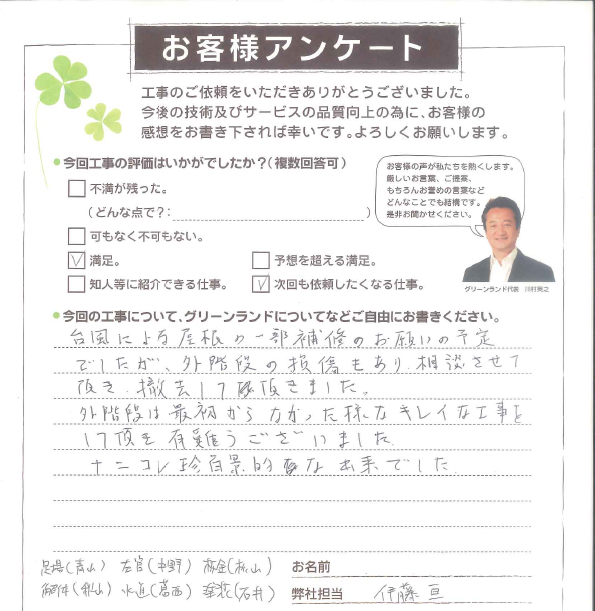 お客様アンケート
工事のご依頼をいただきありがとうございました。
今後の技術及びサービスの品質向上の為に、お客様の
感想をお書き下されば幸いです。よろしくお願いします。
●今回工事の評価はいかがでしたか?(複数回答可)
不満が残った。
(どんな点で?: )
可もなく不可もない。
満足。
予想を超える満足。
知人等に紹介できる仕事。
次回も依頼したくなる仕事。
お客様の声が私たちを熱くします。
厳しいお言葉、ご提案、
もちろんお誉めの言葉など
どんなことでも結構です。
是非お聞かせください。
グリーンランド代表 川村英之
●今回の工事について、グリーンランドについてなどご自由にお書きください。
台風による屋根の一部補修のお願いの予定
でしたが、外階段の損傷もあり 相談させて
頂き 撤去して頂きました。
外階段は最初からなかった様なキレイな工事を
して頂き有難うございました
ナニコレ珍百景的な出来でした
足場(青山) 左官(中野) 板金(松山)
解体(秋山) 水道(葛西) 塗装(石井)
お名前
弊社担当 伊藤 亘